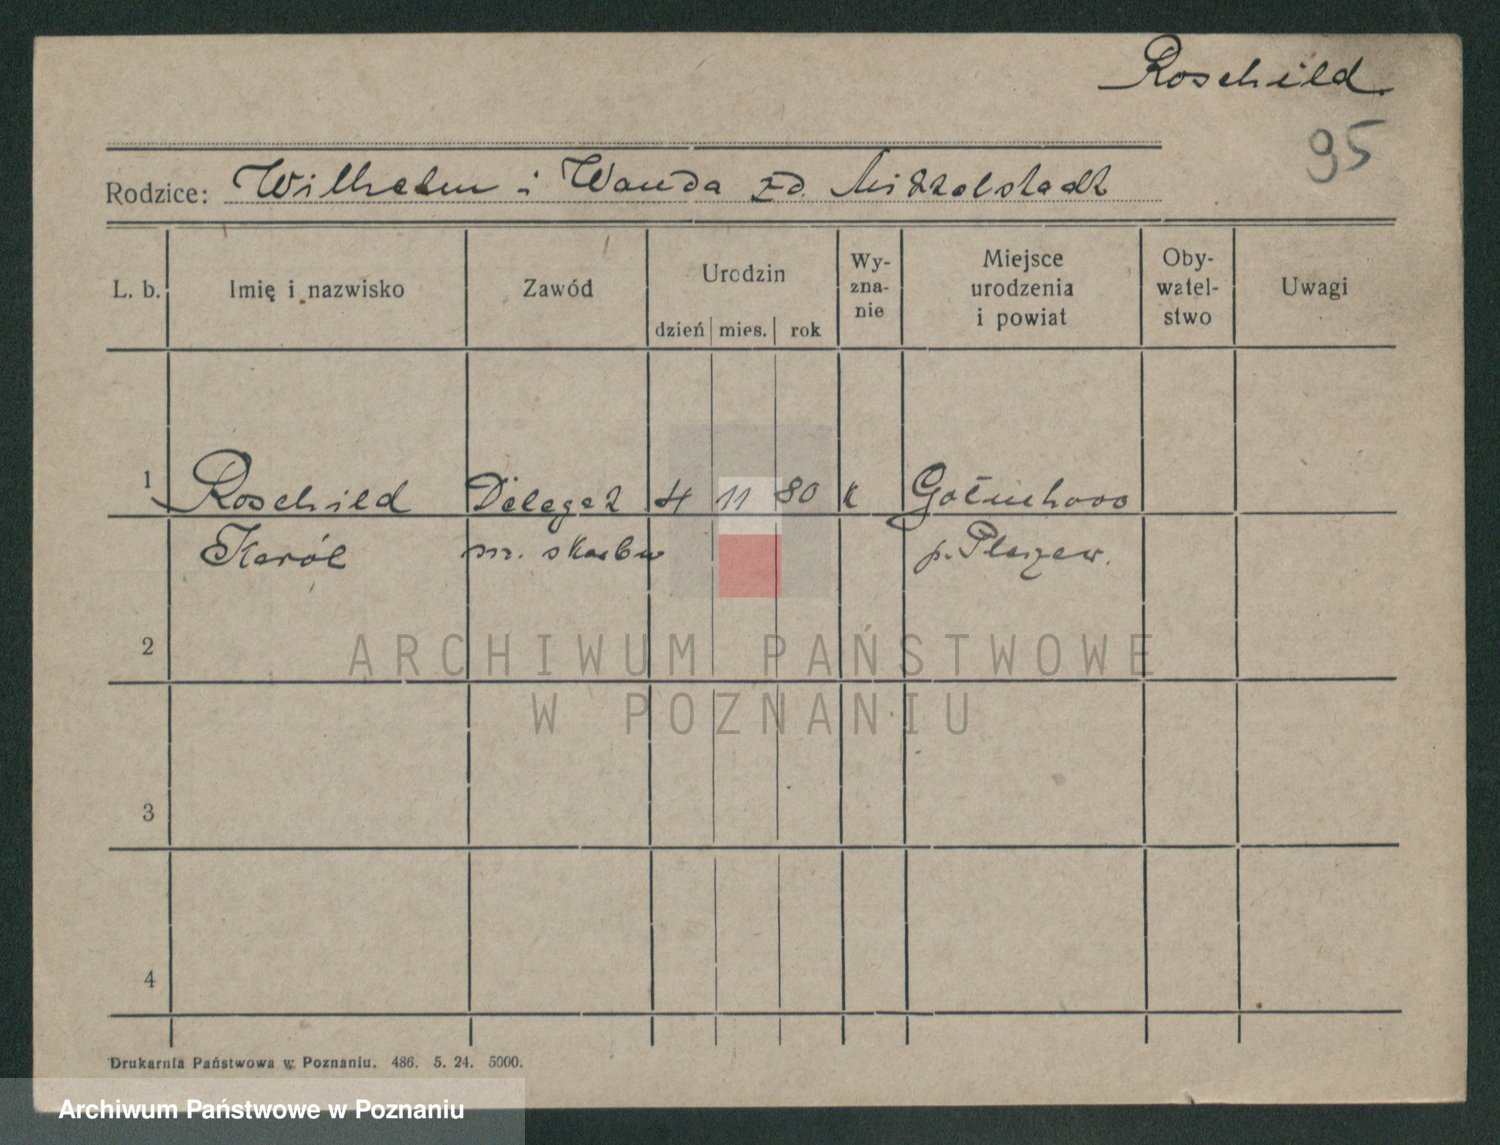 Roschild.
95
Rodzice: Wilhelm i Wanda zd.
L. b.
Imię i nazwisko
Zawód
Urodzin
dzień mies. rok
Wy-
zna-
nie
Miejsce
urodzenia
i powiat
Oby-
watel-
stwo
Uwagi
1 Roschild Delegat 4 11 80 k Gołuchowo
Karól m. skarbu p. Pleszew.
2
3
4
ARCHIWUM PAŃSTWOWE
W POZNANIU
Drukarnia Państwowa w Poznaniu. 486. 5. 24. 5000.
Archiwum Państwowe w Poznaniu